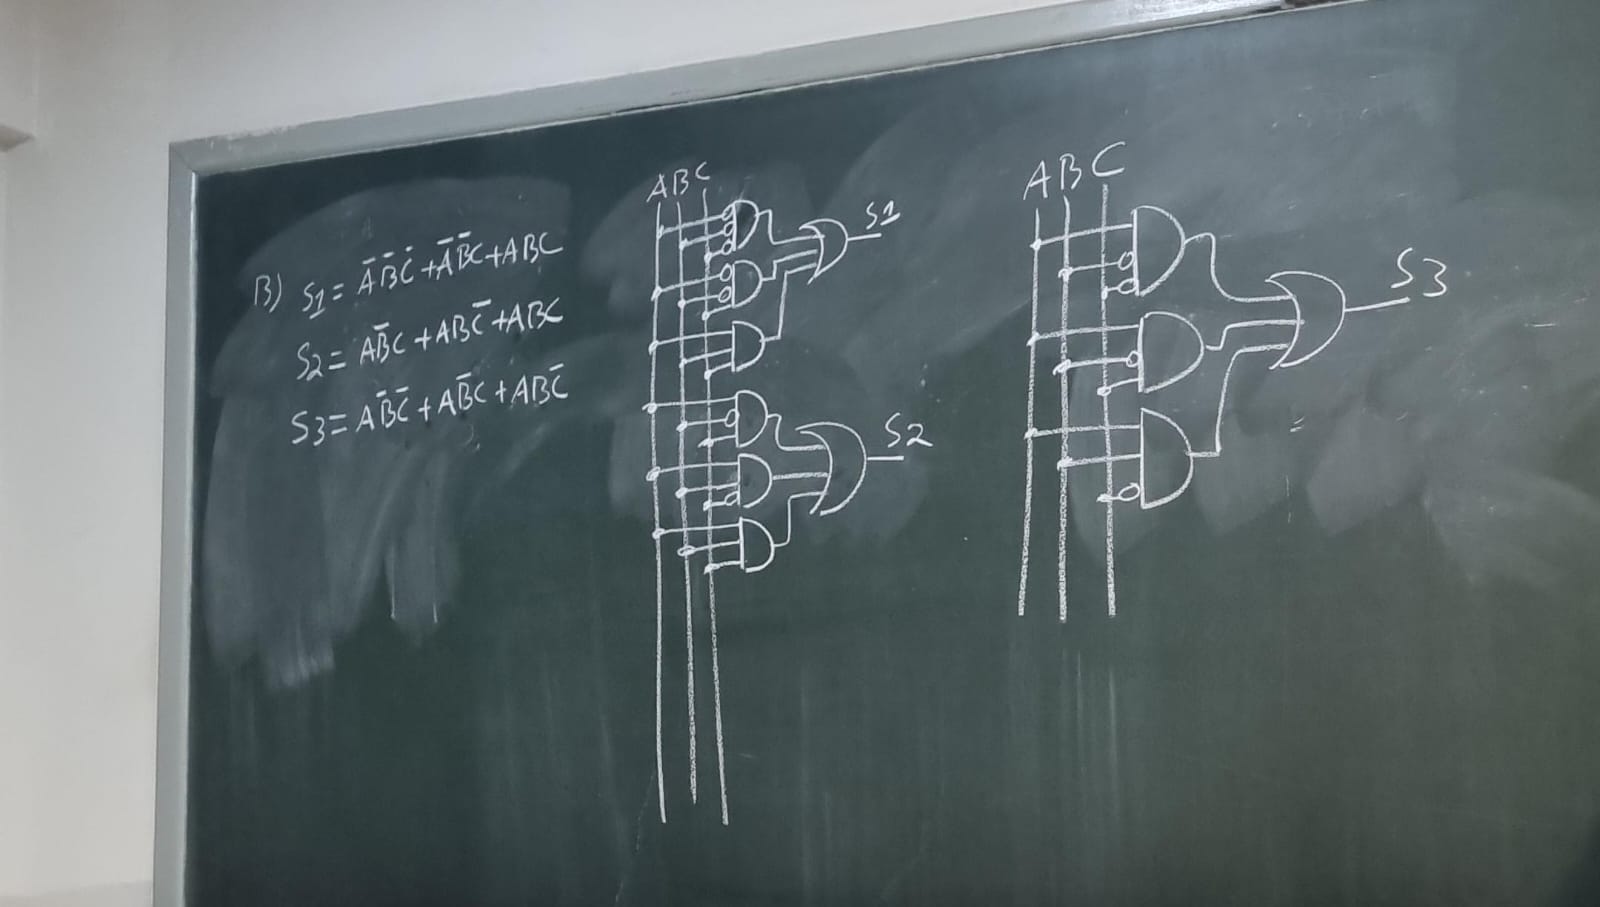 B) S1 = A̅B̅C̅ + A̅B̅C + ABC
S2 = AB̅C + ABC̅ + ABC
S3 = AB̅C̅ + AB̅C + ABC̅
A B C
S1
S2
A B C
S3